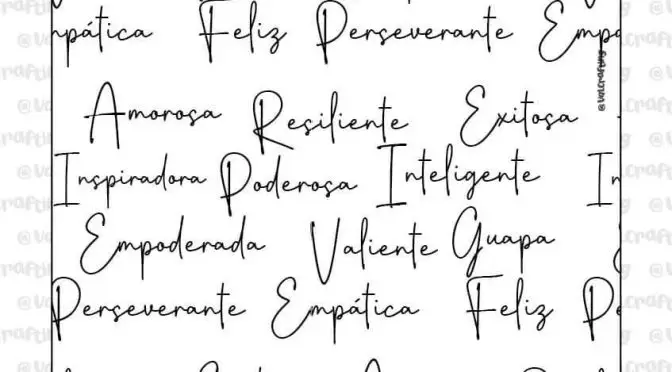 Feliz Perseverante
Amorosa Resiliente Exitosa
Inspiradora Poderosa Inteligente
Empoderada Valiente Guapa
Perseverante Empática Feliz
@valcrafting